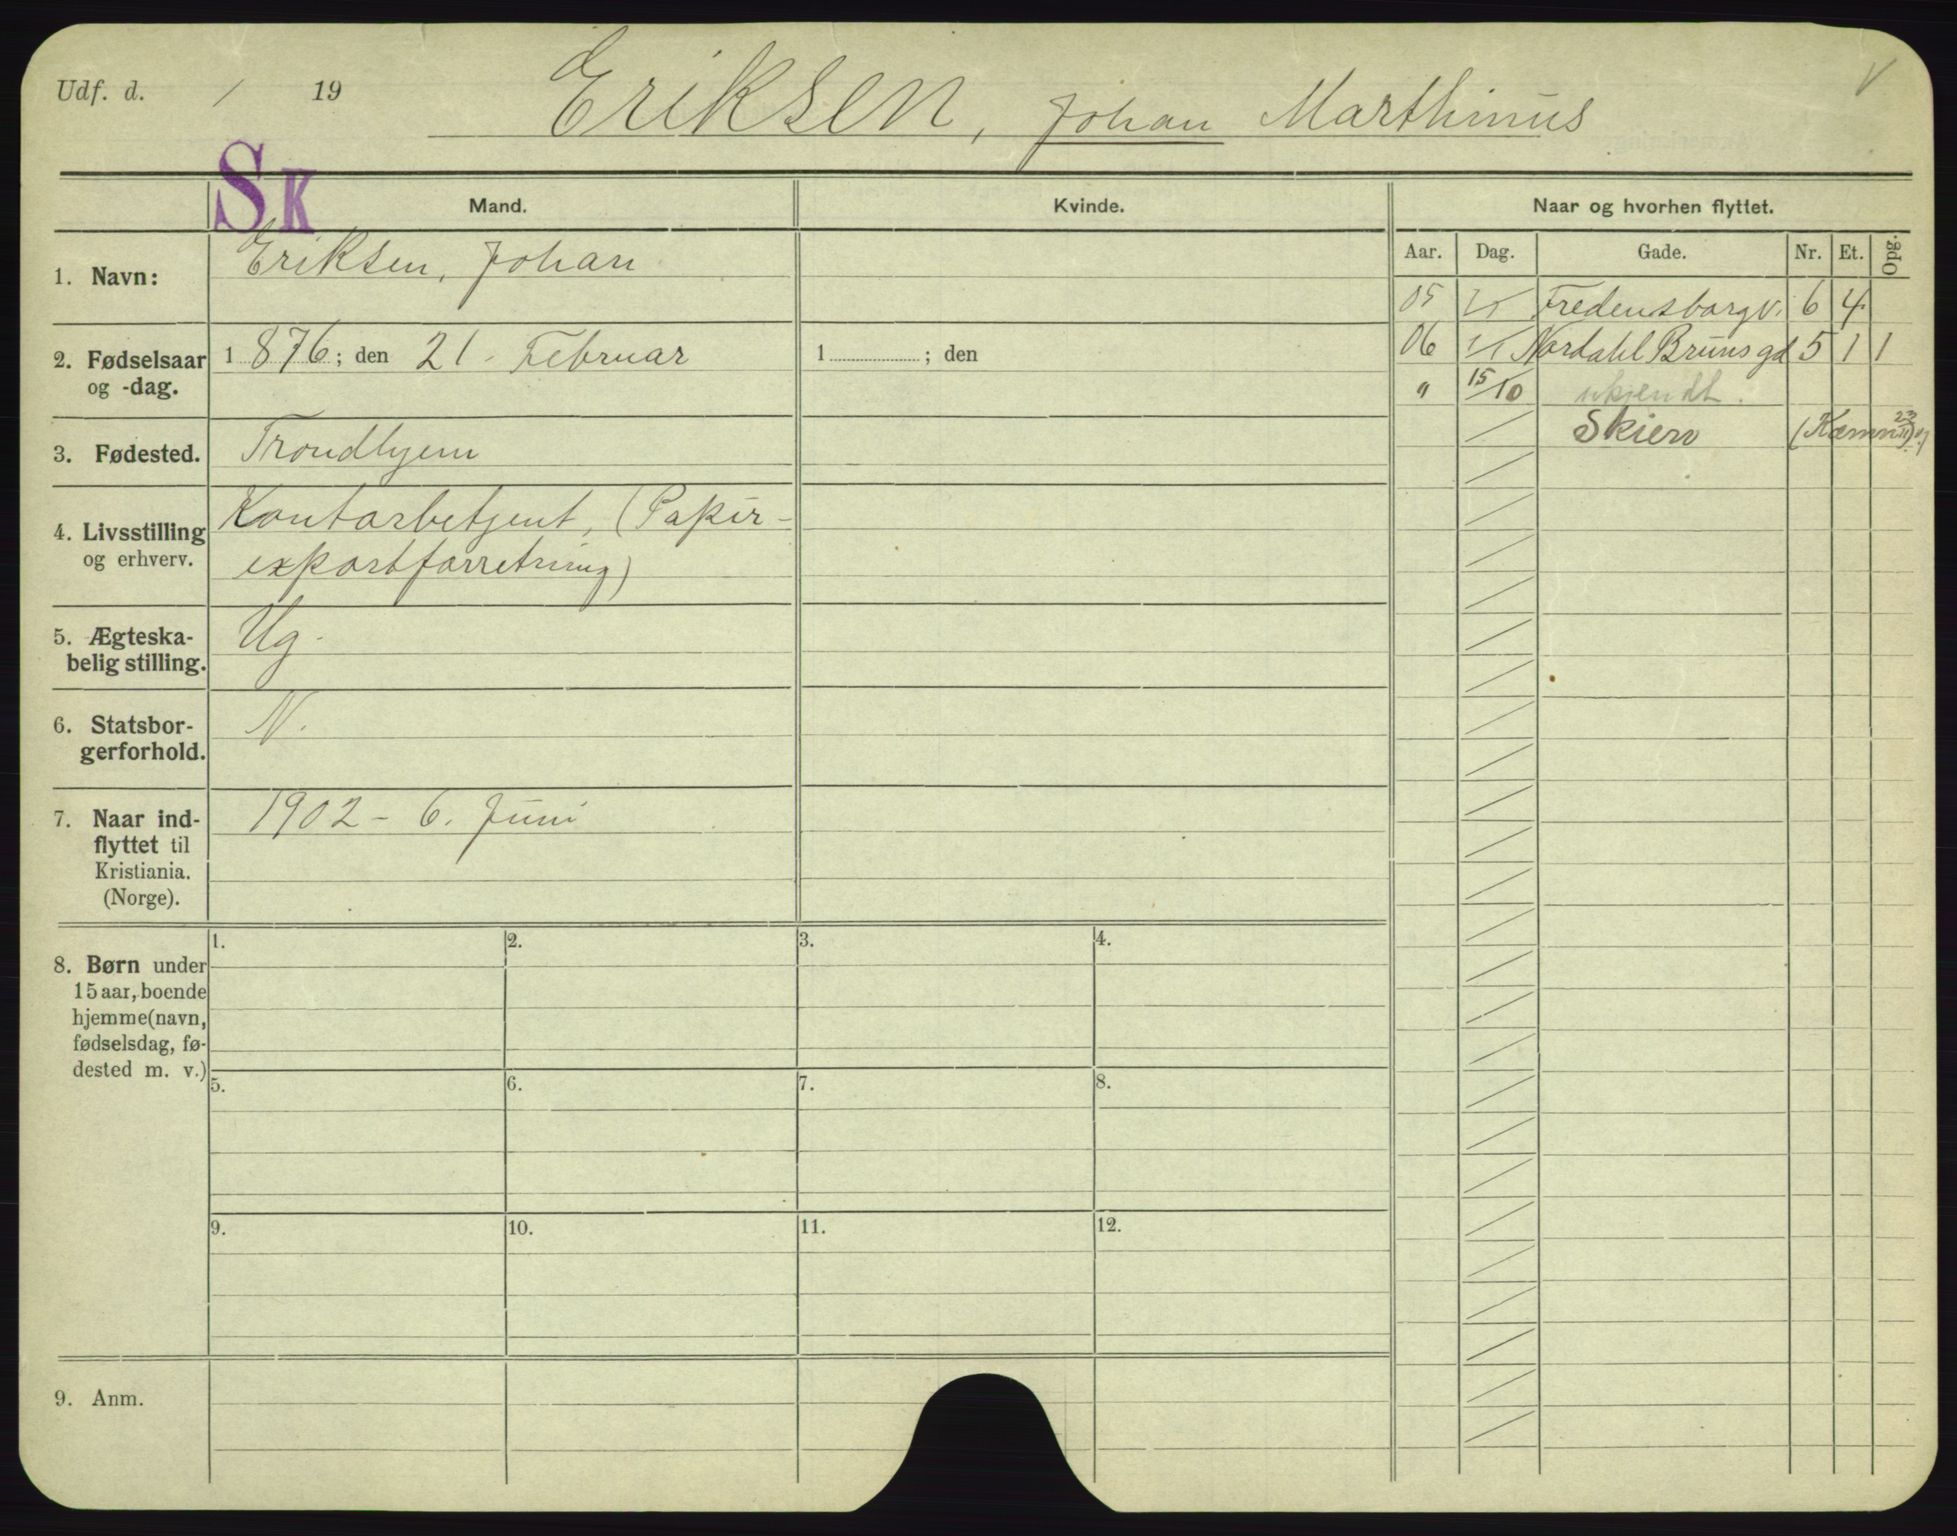 Udf. d. / 19
Eriksen, Johan Marthinus
V
SK
Mand. Kvinde. Naar og hvorhen flyttet.
Aar. Dag. Gade. Nr. Et. Opg.
1. Navn: Eriksen, Johan
05 1/1 Fredensborgv. 6 4
06 1/1 Nordahl Bruns gd 5 1 1
" 15/10 ukjendt.
Skien (Kæmn 23/11 07)
2. Fødselsaar
og -dag.
1876; den 21. Februar
1 ; den
3. Fødested. Trondhjem
4. Livsstilling
og erhverv.
Kontorbetjent, (Papir-
exportforretning)
5. Ægteska-
belig stilling.
Ug.
6. Statsbor-
gerforhold.
N.
7. Naar ind-
flyttet til
Kristiania.
(Norge).
1902 - 6. Juni
8. Børn under
15 aar, boende
hjemme (navn,
fødselsdag, fø-
dested m. v.)
1. 2. 3. 4.
5. 6. 7. 8.
9. 10. 11. 12.
9. Anm.